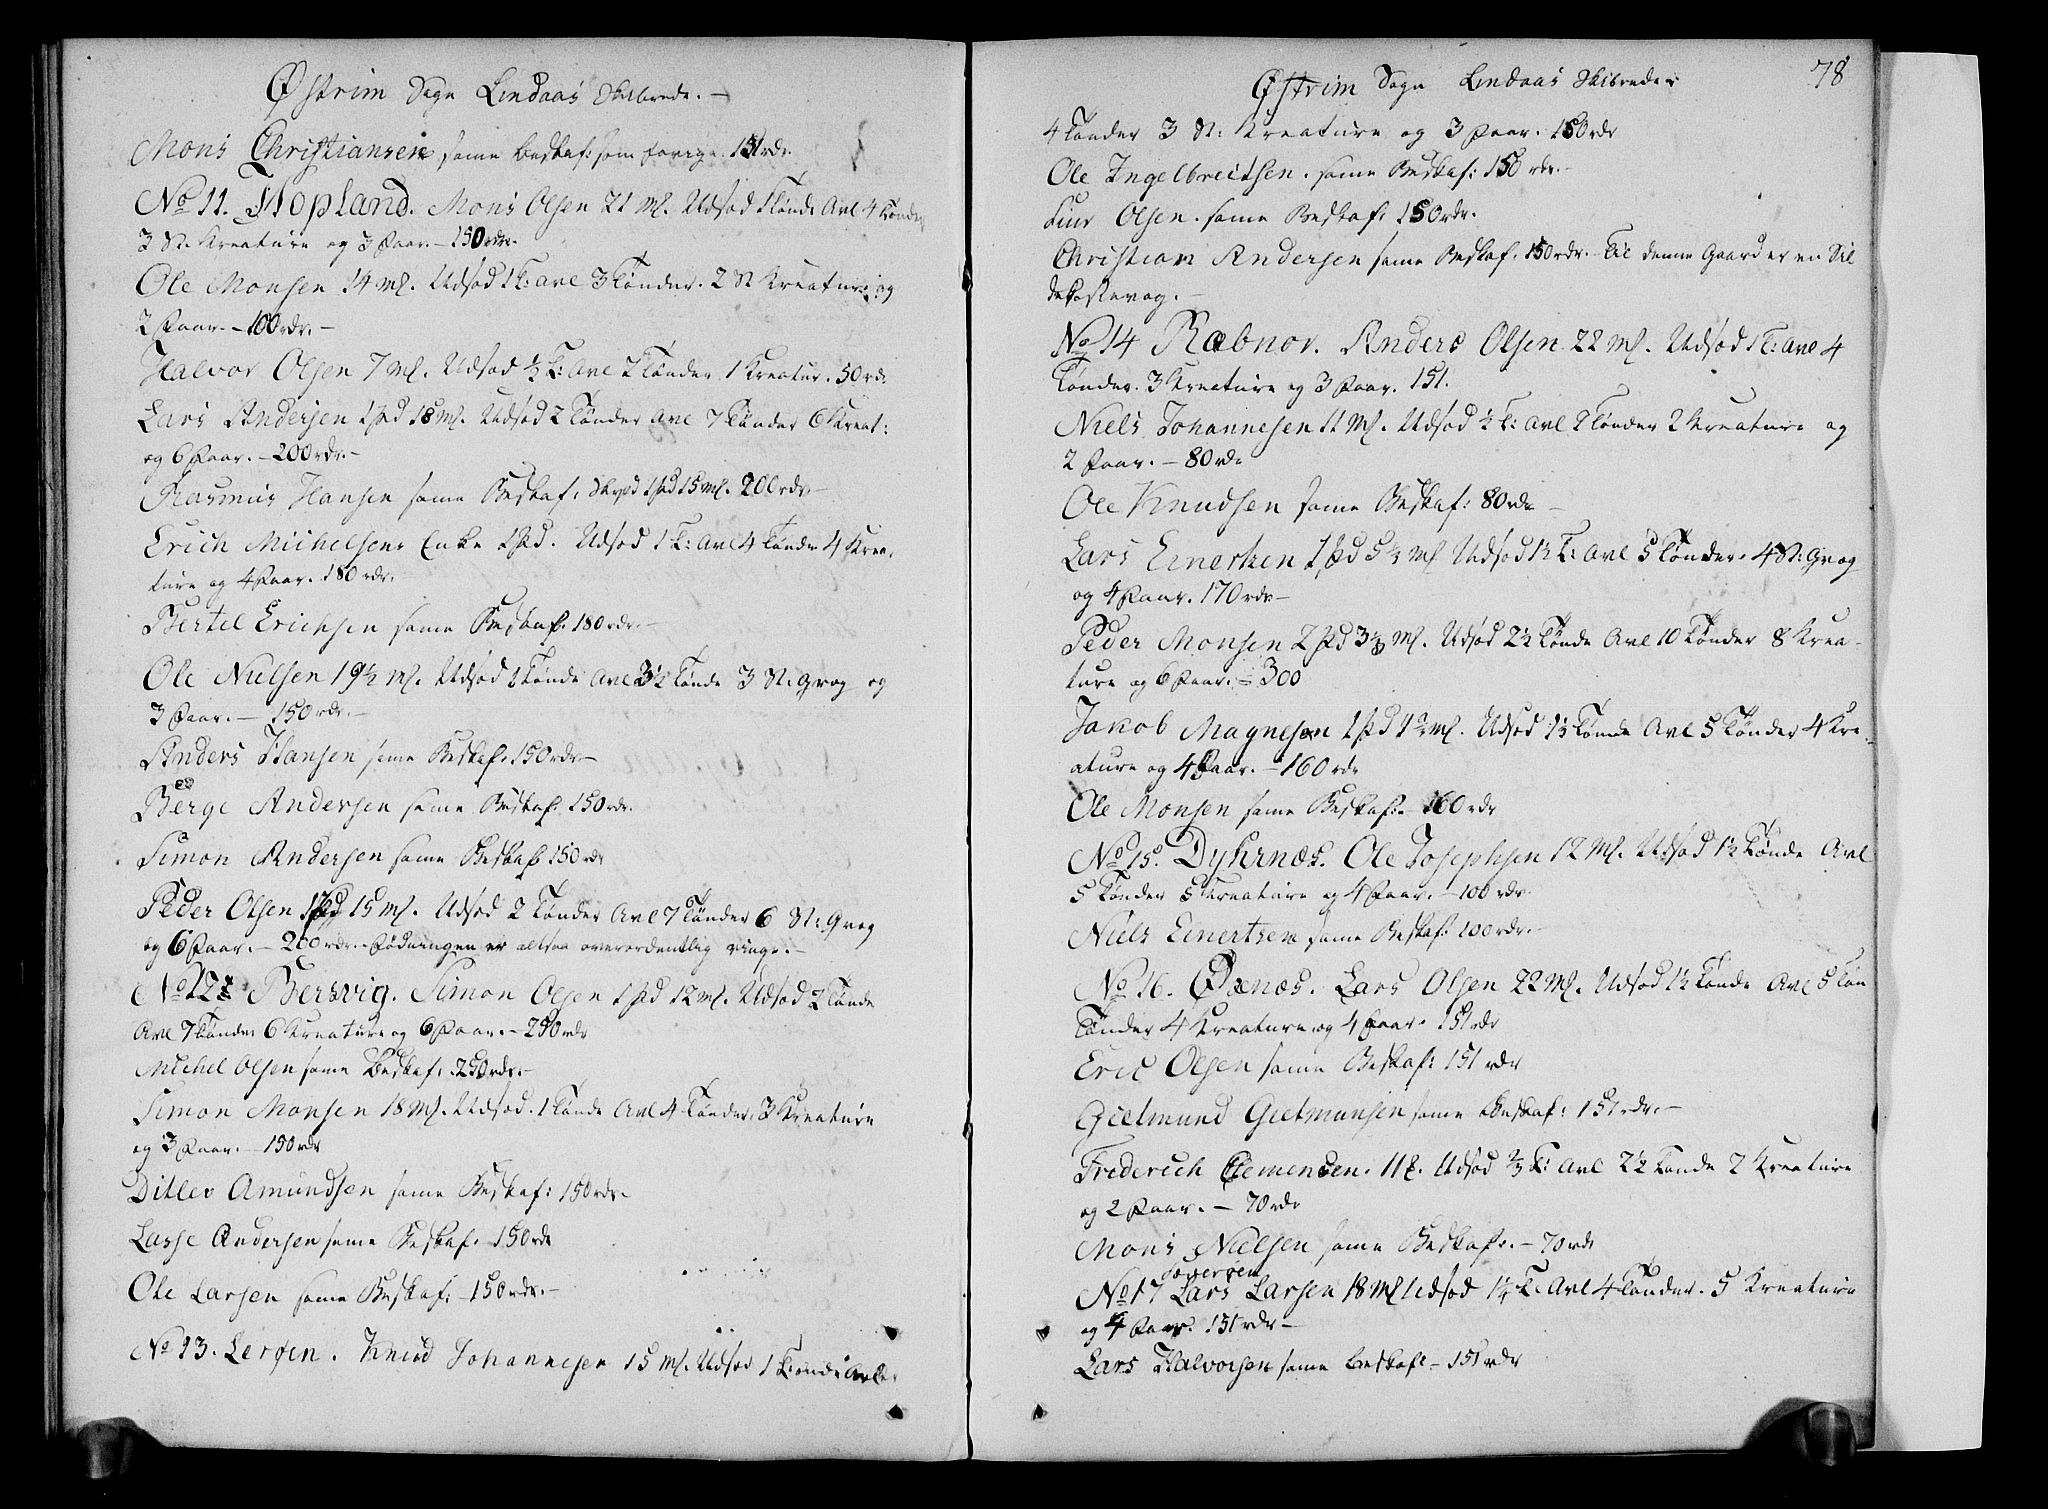 Østrim Sogn Lindaas Skibrede. —
Mons Christiansen same beskaf: som forige. 151 rdr.
No 11. Hopland. Mons Olsen 21 ml. Udsød 1 tønde Avl 4 tønder
3 St. Kreature og 3 Faar. — 150 rdr.
Ole Monsen 14 ml. Udsød 1 T: Avl 3 Tønder. 2 St Kreature og
2 Faar. — 100 rdr. —
Halvor Olsen 7 ml. Udsød ½ T: Avl 2 Tønder 1 Kreatur. 50 rdr
Lars Andersen 1 pd 18 ml. Udsød 2 Tønder Avl 7 Tønder 6 Kreat:
og 6 Faar. — 200 rdr. —
Rasmus Hansen same Beskaf: Skyld 1 pd 15 ml. 200 rdr —
Erich Michelsens Enke 1 pd. Udsød 1 T: Avl 4 Tønder 4 Krea-
ture og 4 Faar. 180 rdr.
Bertel Erichsen same Beskaf. 180 rdr. —
Ole Nielsen 19½ ml. Udsød 1 Tønde Avl 3½ Tønde 3 St: Qvæg og
3 Faar. — 150 rdr. —
Anders Hansen same Beskaf. 150 rdr —
Børge Andersen same Beskaf. 150 rdr.
Simon Andersen same Beskaf 150 rdr
Peder Olsen 1 pd 15 ml. Udsød 2 Tønder Avl 7 Tønder 6 St: Qvæg
og 6 Faar. — 200 rdr. — Fødningen er altsaa overordentlig ringe. —
No 12 Bersvig. Simon Olsen 1 pd 12 ml. Udsød 2 Tønde
Avl 7 Tønder 6 Kreature og 6 Faar. — 250 rdr
Michel Olsen same Beskaf. 250 rdr. —
Simon Monsen 18 ml. Udsød. 1 Tønde Avl 4 Tønder. 3 Kreature
og 3 Faar. — 150 rdr
Ditlev Amundsen same Beskaf: 150 rdr.
Lasse Andersen same Beskaf. 150 rdr
Ole Larsen same Beskaf: — 150 rdr. —
No 13. Lerøen. Knud Johannesen 15 ml. Udsød 1 Tønde Avler
Østrim Sogn Lindaas Skibrede.
78
4 Tønder 3 St: Kreature og 3 Faar. 150 rdr
Ole Ingelbreitsen. same Beskaf: 150 rdr. —
Siur Olsen. same Beskaf. 150 rdr.
Christian Andersen same Beskaf. 150 rdr. Til denne Gaard er en Sil
dekastevog. —
No 14 Rabnor. Anders Olsen 22 ml. Udsød 1 T: Avl 4
Tønder. 3 Kreature og 3 Faar. 151.
Niels Johannesen 11 ml. Udsød ½ T: Avl 2 Tønder 2 Kreature og
2 Faar. — 80 rdr
Ole Knudsen same Beskaf: 80 rdr —
Lars Einertsen 1 pd 5½ ml Udsød 1½ T: Avl 5 Tønder. 4 St: Qvæg
og 4 Faar. 170 rdr —
Peder Monsen 2 pd 3 ml. Udsød 2½ Tønde Avl 10 Tønder 8 Krea-
ture og 6 Faar. = 300
Jakob Magnesen 1 pd ml. Udsød 1½ Tønde Avl 5 Tønder 4 Kre-
ature og 4 Faar. — 160 rdr
Ole Monsen same Beskaf: — 160 rdr
No 15. Dyhrnæs. Ole Josephsen 12 ml. Udsød 1½ Tønde Avl
5 Tønder 5 Kreature og 4 Faar. — 100 rdr
Niels Einertsen same Beskaf: 100 rdr. —
No 16. Øxnæs. Lars Olsen 22 ml. Udsød 1½ Tønde Avl 5 Tøn
Tønder 4 Kreature og 4 Faar. 151 rdr
Eric Olsen same Beskaf: 151 rdr
Gietmund Gietmunsen same Beskaf: 151 rdr. —
Friderich Clemensen. 11 ml. Udsød ⅔ T: Avl 2½ Tønde 2 Kreature
og 2 Faar. — 70 rdr
Mons Nielsen same Beskaf. — 70 rdr
Toverøen
No 17 Lars Larsen 18 ml Udsød 1¼ T: Avl 4 Tønder. 5 Kreature
og 4 Faar. 151 rdr —
Lars Halvorsen same Beskaf — 151 rdr